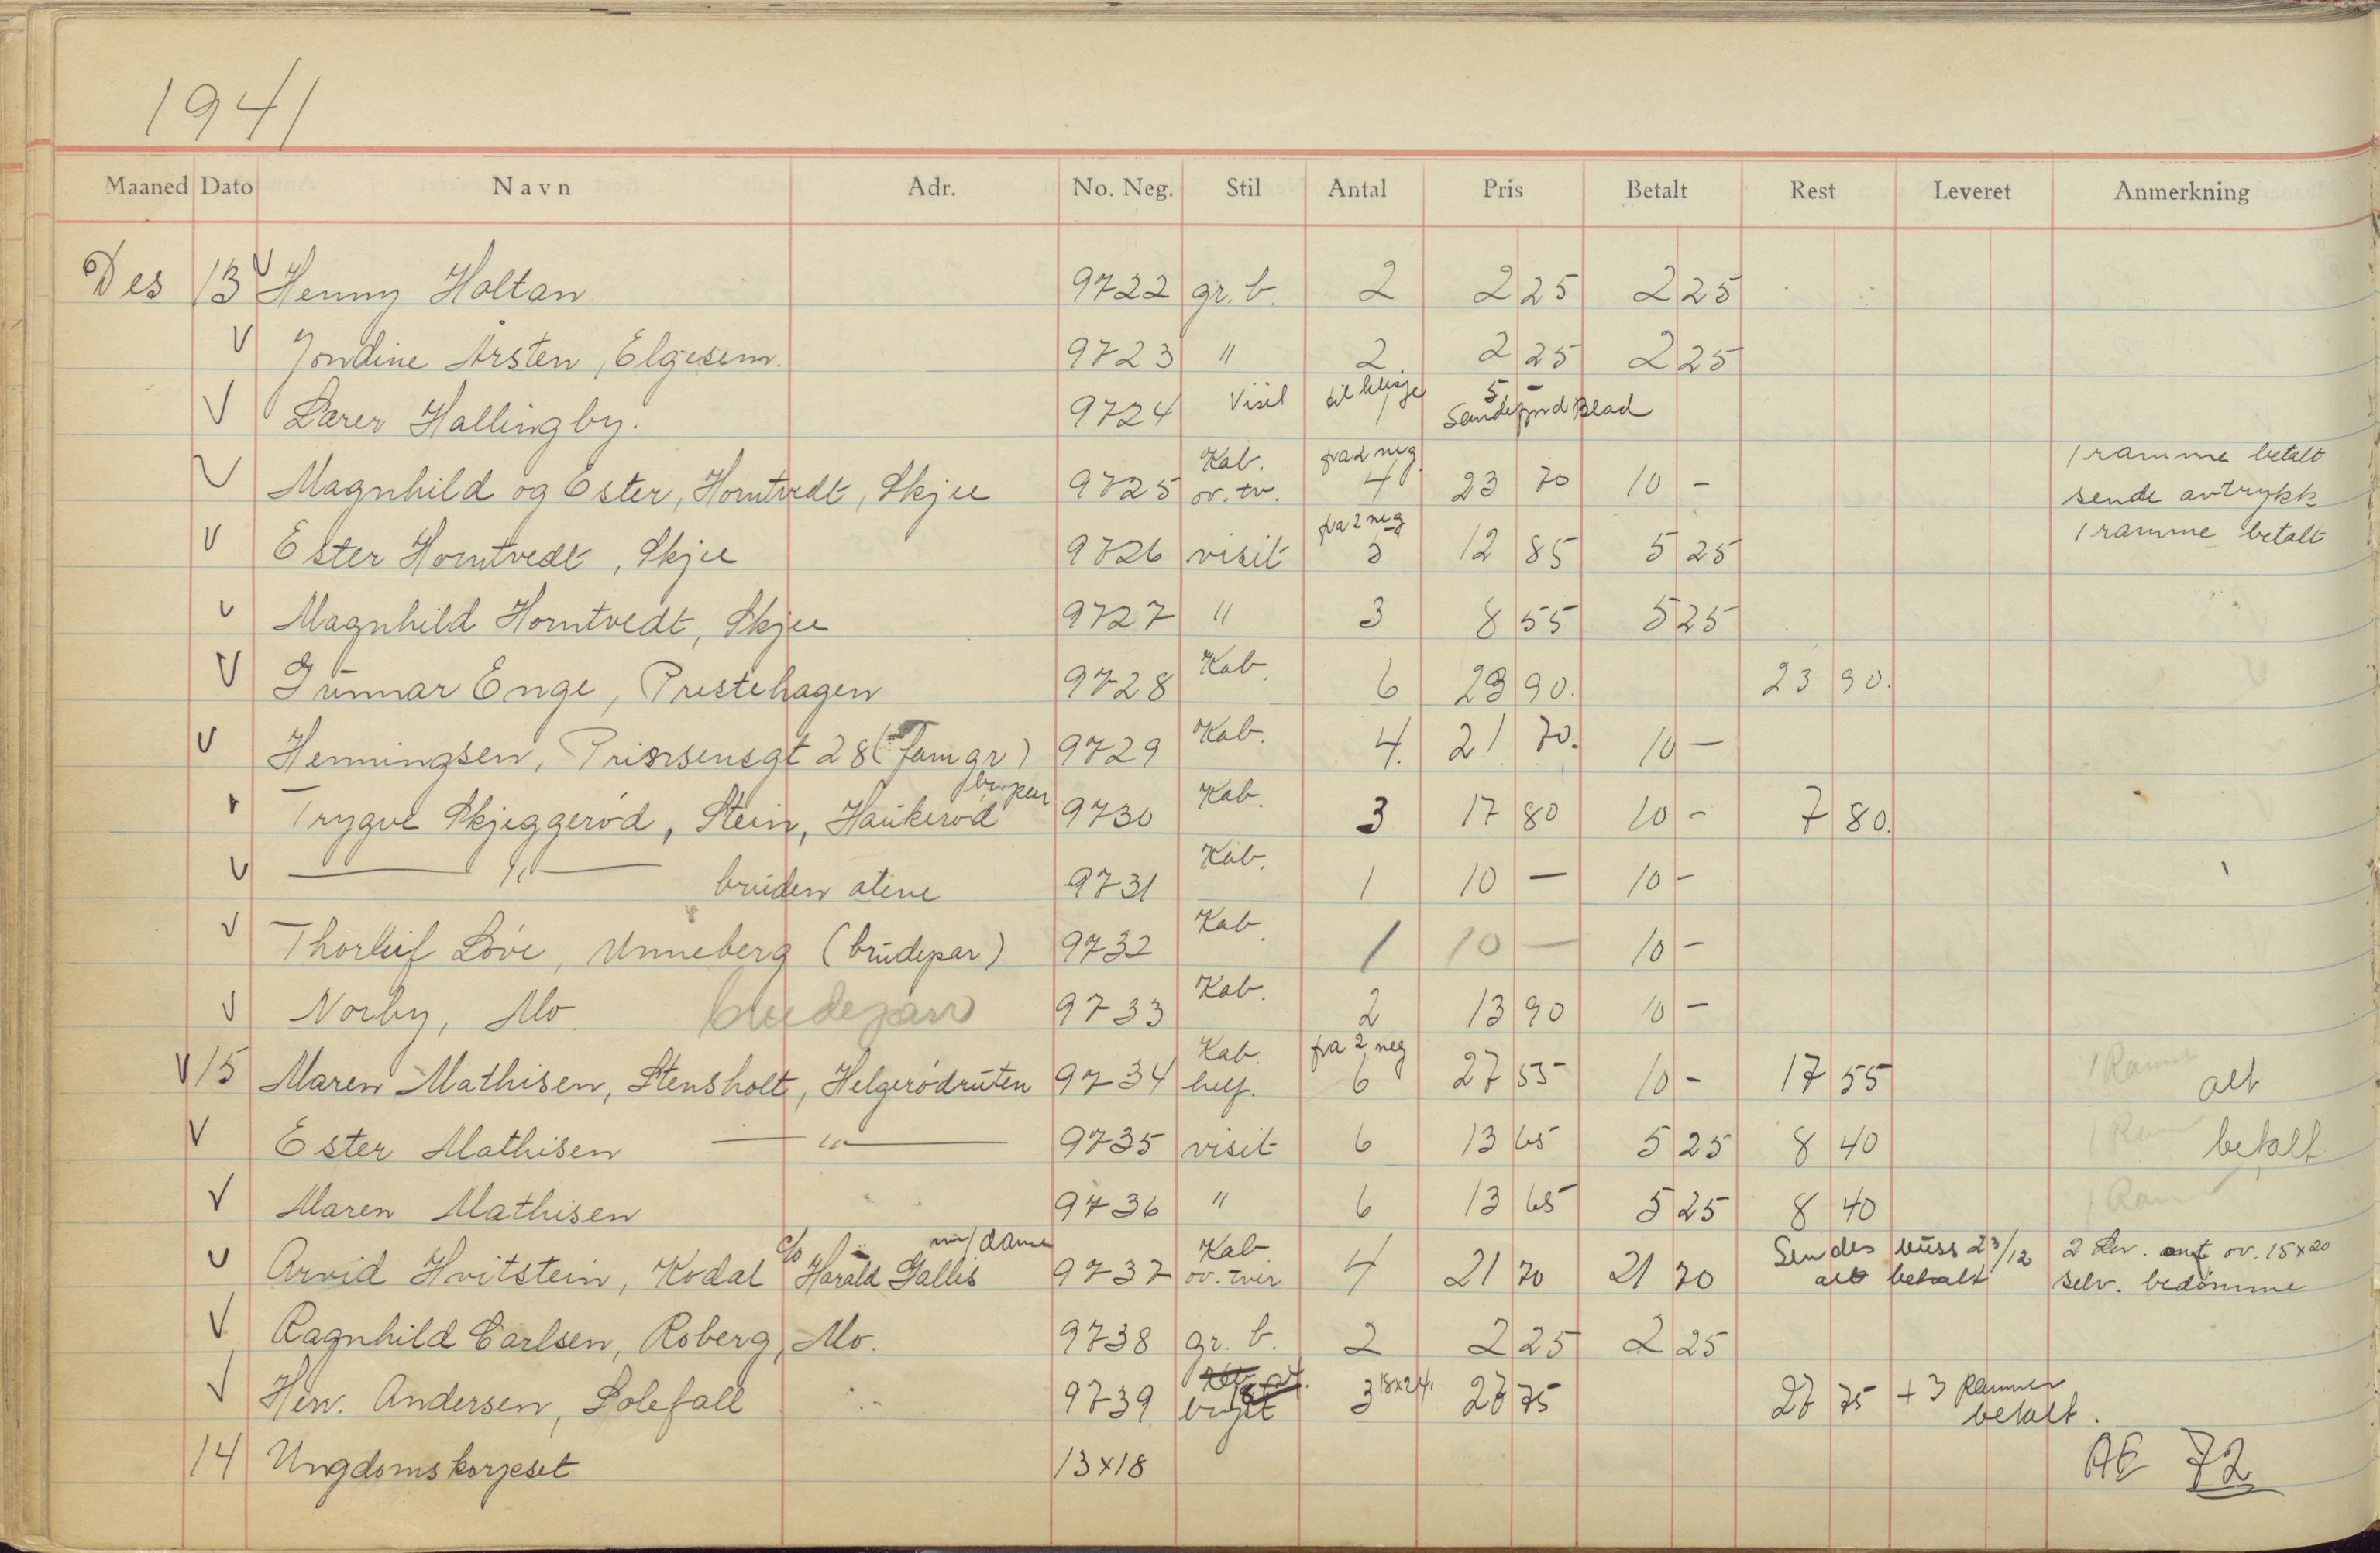 1941
Maaned Dato Navn Adr. No. Neg. Stil Antal Pris Betalt Rest Leveret Anmerkning
Des 13 Henny Holtan 9722 gr. b. 2 2 25 2 25
Jondine Årsten, Elgesem. 9723 " 2 2 25 2 25
Lærer Hallingby. 9724 Visit til klisje 1 5 - Sandefjord Blad
Magnhild og Ester, Horntvedt, Skjee 9725 Kab. ov. tv. fra 2 neg 4 23 70 10 - 1 ramme betalt sende avtrykk
Ester Horntvedt, Skjee 9726 visit fra 2 neg 5 12 85 5 25 1 ramme betalt
Magnhild Horntvedt, Skjee 9727 " 3 8 55 5 25
Gunnar Enge, Prestehagen 9728 Kab. 6 23 90. 23 90.
Henningsen, 28 (Fam gr) 9729 Kab. 4. 21 70. 10 -
Trygve Skjeggerød, Stein, Haukerød br.par 9730 Kab. 3 17 80 10 - 7 80.
— " — bruden alene 9731 Kab. 1 10 — 10 -
Thorleif Löve, Unneberg (brudepar) 9732 Kab. 1 10 — 10 -
Norby, Mo. brudepar 9733 Kab. 2 13 90 10 -
15 Maren Mathisen, Stensholt, Helgerødruten 9734 Kab. helf. fra 2 neg 6 27 55 10 - 17 55 1 Ramme alt
Ester Mathisen — " — 9735 visit 6 13 65 5 25 8 40 1 Ram betalt
Maren Mathisen 9736 " 6 13 65 5 25 8 40 1 Ram
Arvid Hvitstein, Kodal c/o Harald Gallis m/dame 9737 Kab ov. tvir 4 21 70 21 70 Sendes buss 23/12 alt betalt 2 Lev. ov. 15x20 selv. bedömme
Ragnhild Carlsen, Roberg, Mo. 9738 gr. b. 2 2 25 2 25
Herv. Andersen, Solefall 9739 3 18x24. 27 75 27 75 + 3 Rammer betalt.
14 Ungdomskorpset 13x18 AE 72